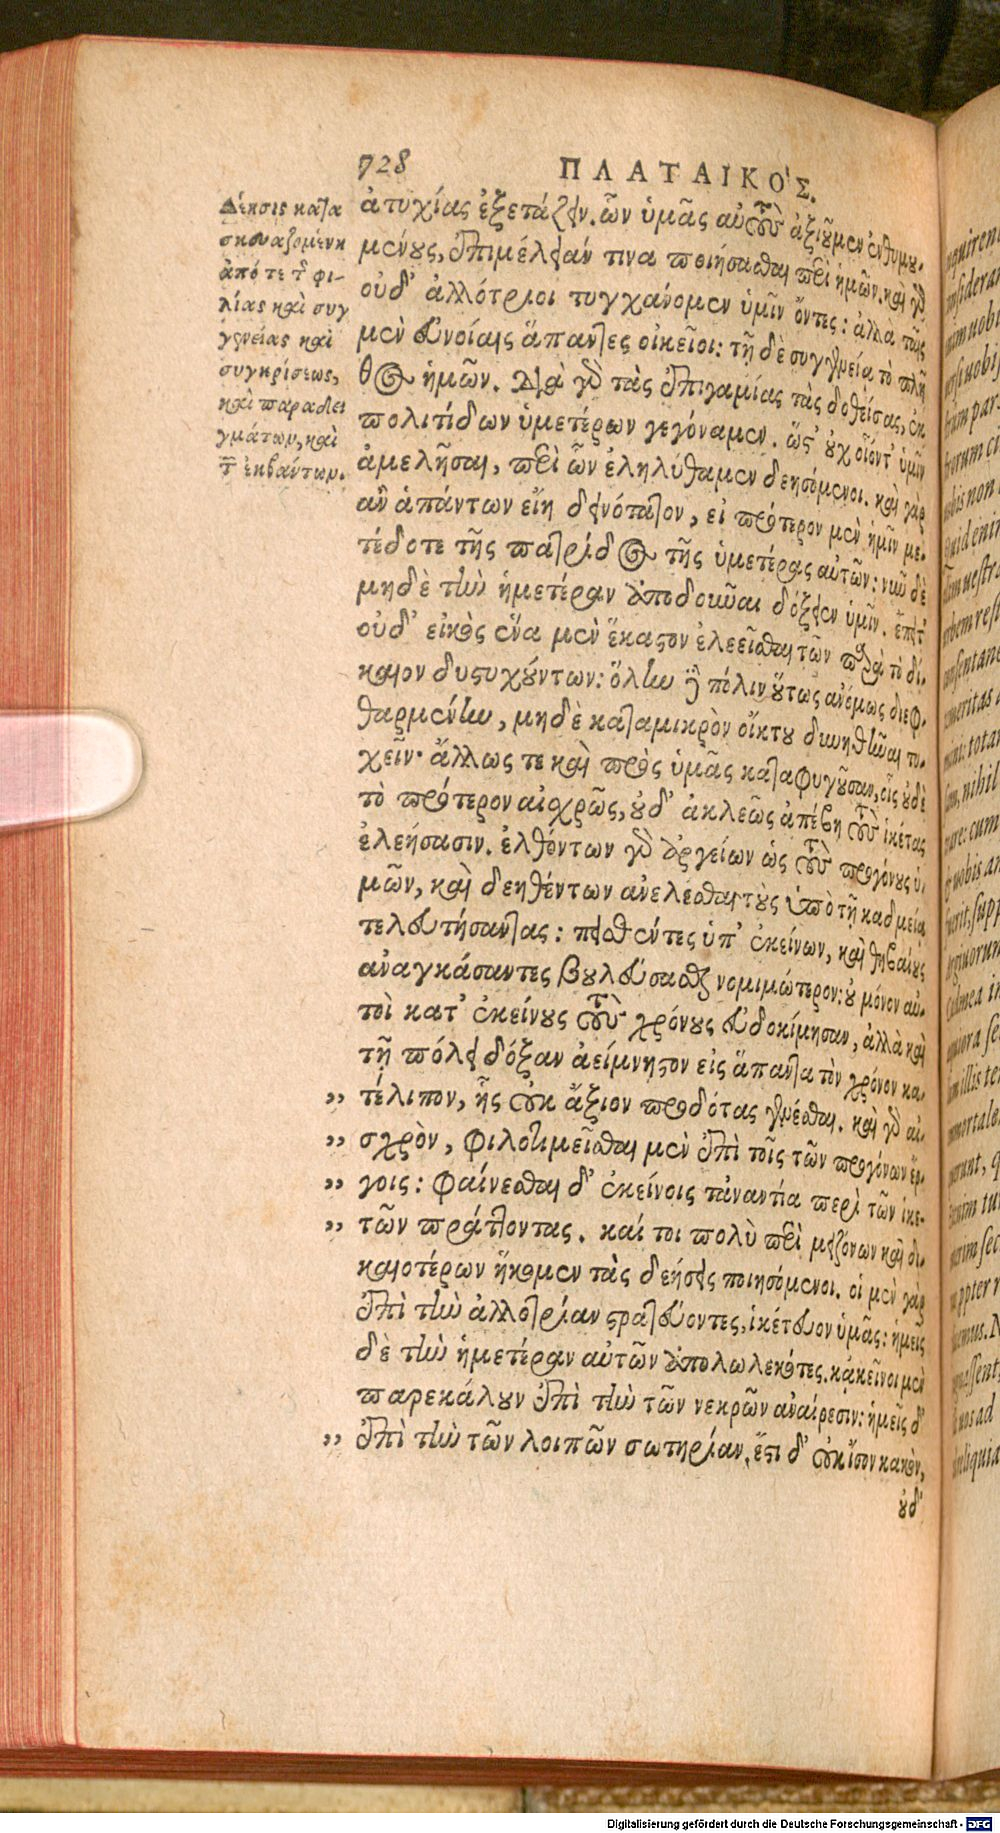 728 ΠΛΑΤΑΙΚΟ'Σ.
Δέησις κατα
σκευαζομένη
ἀπό τε τ φι-
λίας καὶ συγ
γενείας καὶ
συγκρίσεως,
καὶ παραδει
γμάτων, καὶ
τ ἐκβάντων.
ἀτυχίας ἐξετάζειν. ὧν ὑμᾶς αὐτοὺς ἀξιοῦμεν ἐνθυμου-
μένους, ἐπιμέλειάν τινα ποιήσασθαι περὶ ἡμῶν. καὶ γὰρ
οὐδ' ἀλλότριοι τυγχάνομεν ὑμῖν ὄντες: ἀλλὰ ταῖς
μὲν εὐνοίαις ἅπαντες οἰκεῖοι: τῇ δὲ συγγενείᾳ τὸ πλῆ
θος ἡμῶν. Διὰ γὰρ τὰς ἐπιγαμίας τὰς δοθείσας, ἐκ
πολιτίδων ὑμετέρων γεγόναμεν. ὥστ' οὐχ οἷόντ' ὑμῖν
ἀμελῆσαι, περὶ ὧν ἐληλύθαμεν δεησόμενοι. καὶ γὰρ
ἂν ἁπάντων εἴη δεινότατον, εἰ πρότερον μὲν ἡμῖν με-
τέδοτε τῆς πατρίδος τῆς ὑμετέρας αὐτῶν: νῦν δὲ
μηδὲ τὴν ἡμετέραν ἀποδοῦναι δόξειεν ὑμῖν. ἔπειτ'
οὐδ' εἰκὸς ἕνα μὲν ἕκαστον ἐλεεῖσθαι τῶν παρὰ τὸ δί-
καιον δυστυχούντων: ὅλην δὲ πόλιν οὕτως ἀνόμως διεφ-
θαρμένην, μηδὲ καταμικρὸν οἴκτου δυνηθῆναι τυ-
χεῖν· ἄλλως τε καὶ πρὸς ὑμᾶς καταφυγοῦσαν, οἷς οὐδὲ
τὸ πρότερον αἰσχρῶς, οὐδ' ἀκλεῶς ἀπέβη τοὺς ἱκέτας
ἐλεήσασιν. ἐλθόντων γὰρ Ἀργείων ὡς τοὺς προγόνους ὑ-
μῶν, καὶ δεηθέντων ἀνελέσθαι τοὺς ὑπὸ τῇ καδμείᾳ
τελευτήσαντας: πεισθέντες ὑπ' ἐκείνων, καὶ θηβαίους
ἀναγκάσαντες βουλεύσασθαι νομιμώτερον: οὐ μόνον αὐ-
τοὶ κατ' ἐκείνους τοὺς χρόνους εὐδοκίμησαν, ἀλλὰ καὶ
τῇ πόλει δόξαν ἀείμνηστον εἰς ἅπαντα τὸν χρόνον κα-
,, τέλιπον, ἧς οὐκ ἄξιον προδότας γενέσθαι. καὶ γὰρ αἰ-
,, σχρὸν, φιλοτιμεῖσθαι μὲν ἐπὶ τοῖς τῶν προγόνων ἔρ-
,, γοις: φαίνεσθαι δ' ἐκείνοις τἀναντία περὶ τῶν ἱκε-
,, τῶν πράττοντας. καί τοι πολὺ περὶ μειζόνων καὶ δι-
καιοτέρων ἥκομεν τὰς δεήσεις ποιησόμενοι. οἱ μὲν γὰρ
ἐπὶ τὴν ἀλλοτρίαν στρατεύοντες, ἱκέτευον ὑμᾶς: ἡμεῖς
δὲ τὴν ἡμετέραν αὐτῶν ἀπολωλεκότες. κἀκεῖνοι μὲν
παρεκάλουν ἐπὶ τὴν τῶν νεκρῶν ἀναίρεσιν: ἡμεῖς δ'
,, ἐπὶ τὴν τῶν λοιπῶν σωτηρίαν. ἔστι δ' οὐκ ἴσον κακὸν,
οὐδ'